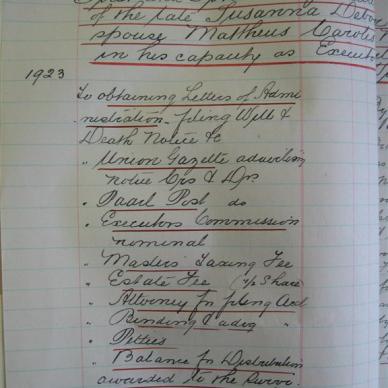 of the late Susanna Debor
spouse Mattheus Carolus
in his capacity as Executor
1923
To obtaining Letters of Admi
nistration, filing Will &
Death Notice &c
" Union Gazette advertising
notice Crs & Drs.
" Paarl Post do
" Executors Commission
nominal
" Masters Taxing Fee
" Estate Fee (½ Share
" Attorney for filing Acct
" Binding & advg "
" Petties
" Balance for Distribution
awarded to the Surviv.